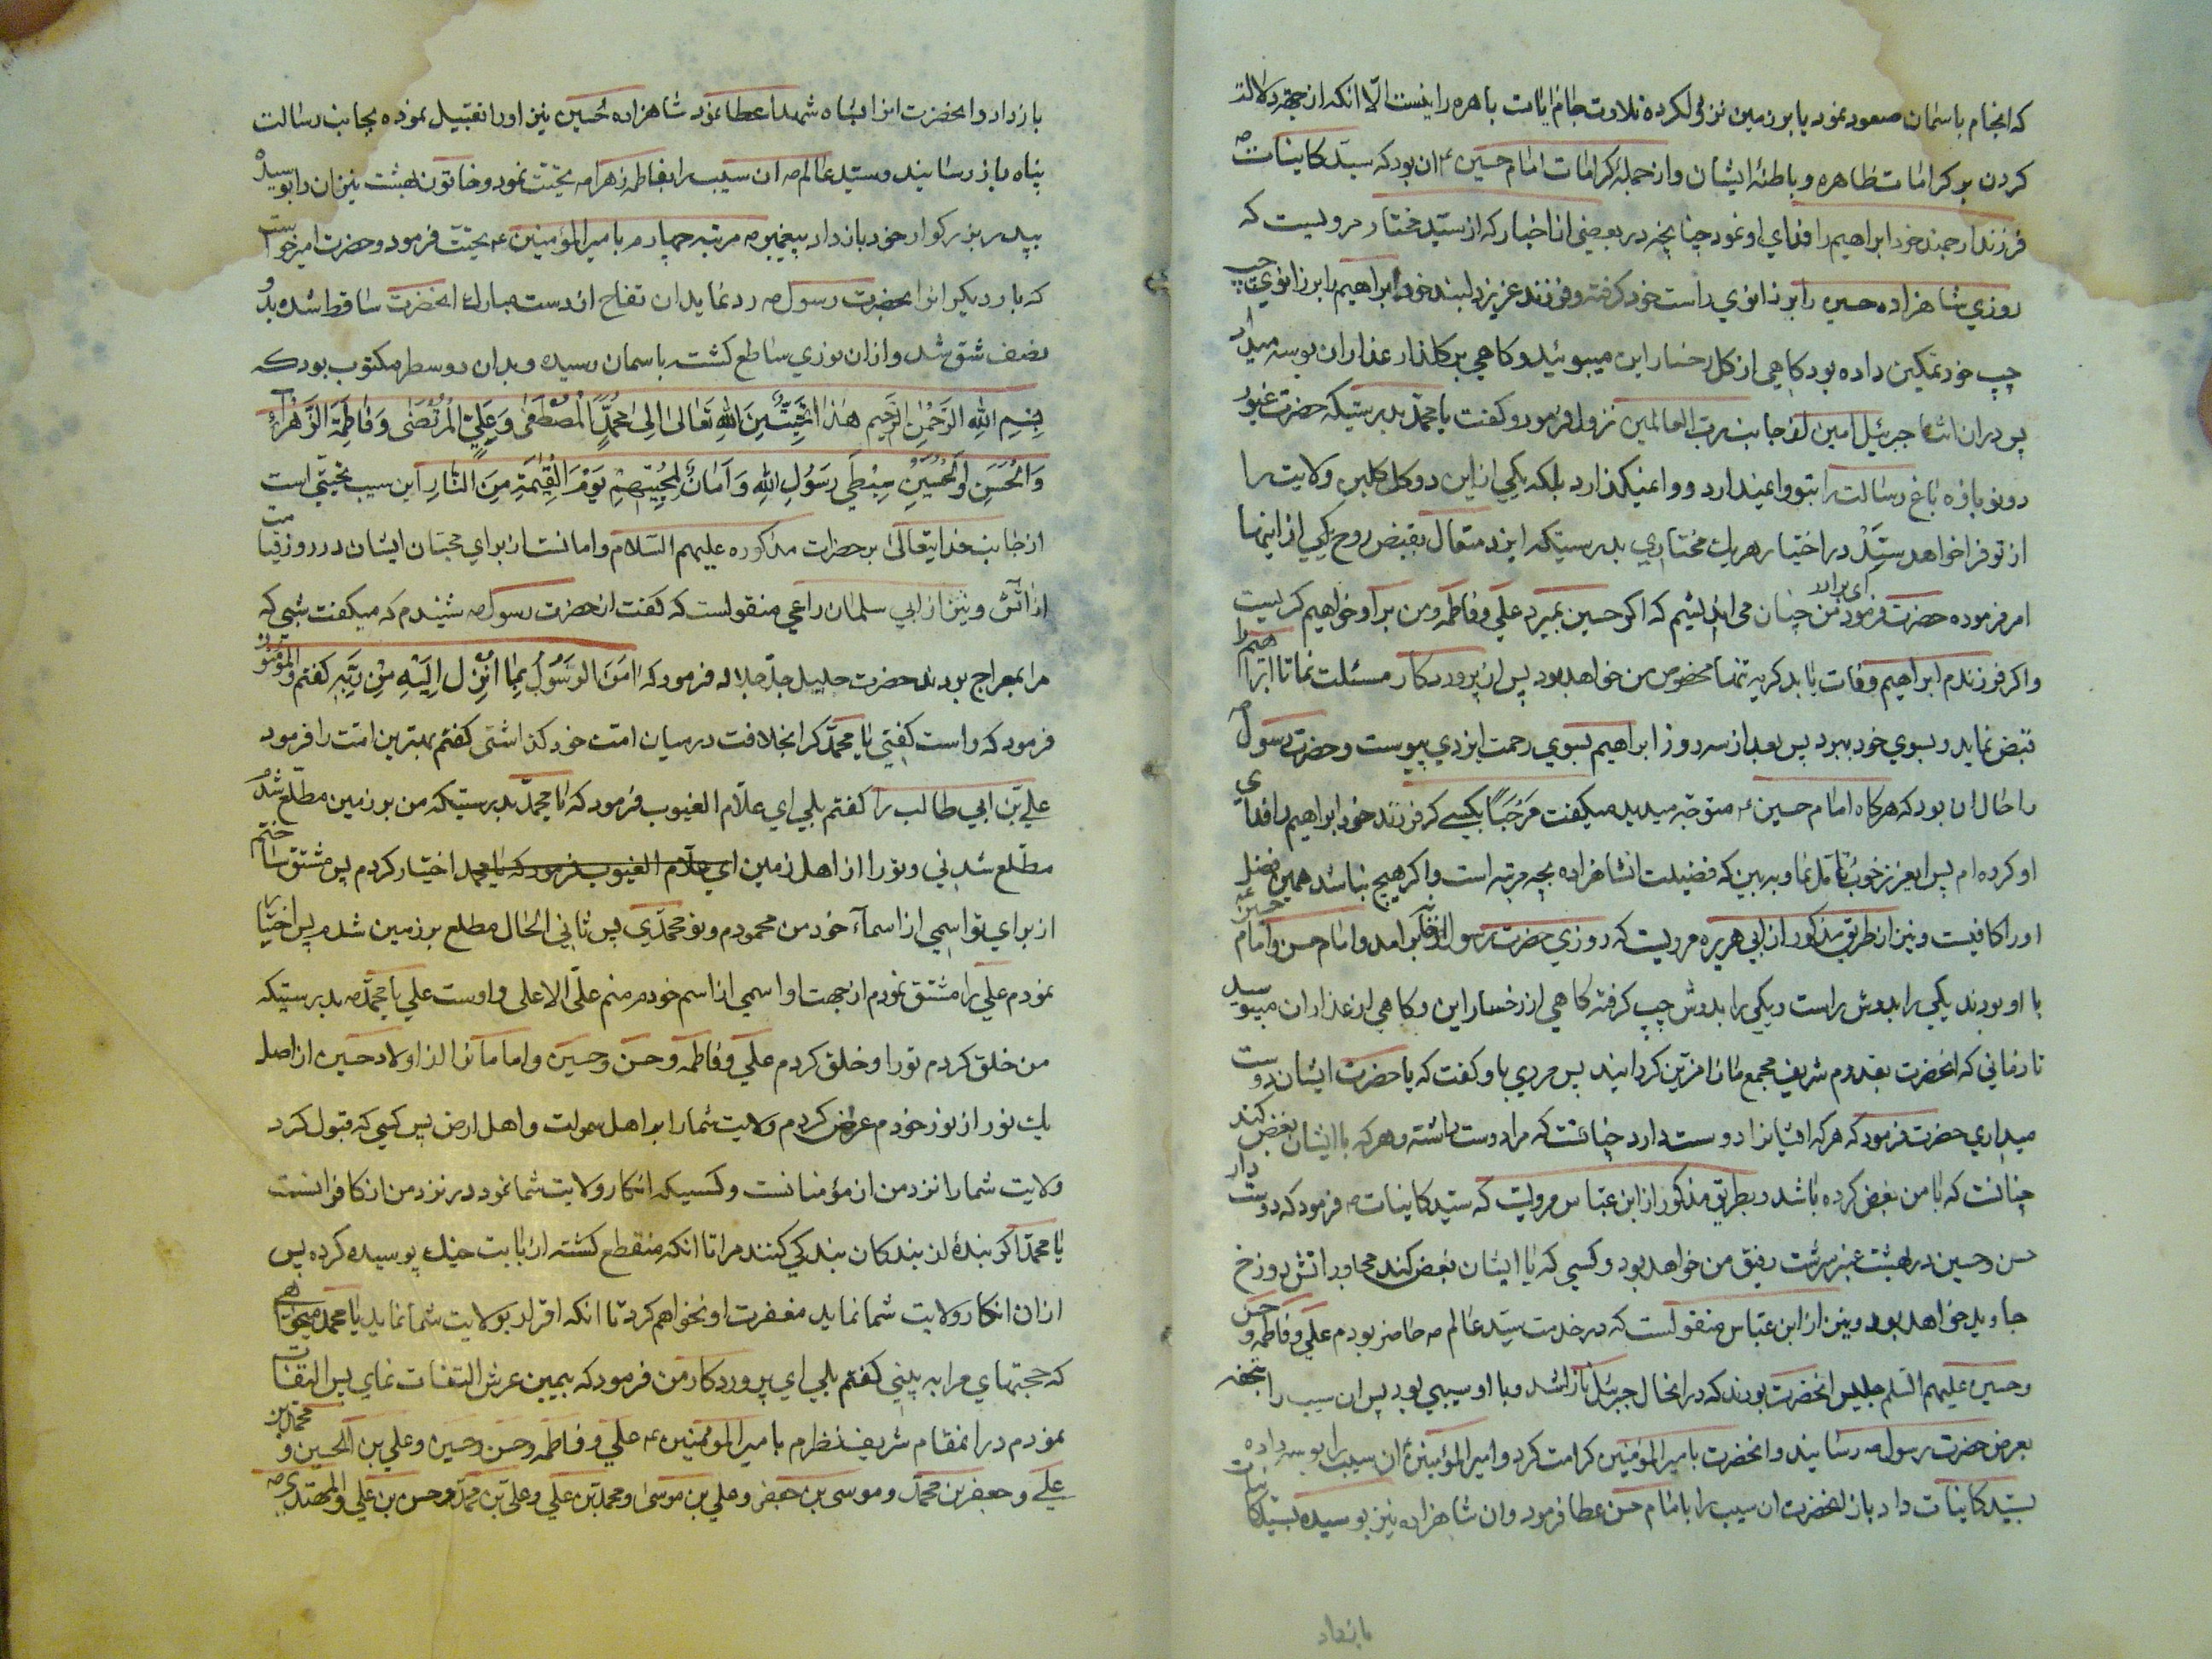 که انجام باسمان صعود نمود یا بر زمین نزول کرده تلاوت جام ایات باهره را نیست الّا انکه از جهة دلالت
کردن بر کرامات ظاهره و باطنهٔ ایشان و از جملهٔ کرامات امام حسین ع ان بود که سیّد کاینات ص
فرزند ارجمند خود ابراهیم را فدای او نمود چنانچه در بعضی از اخبار که از سیّد مختار مرویست که
روزی شاهزاده حسین را بر زانوی راست خود کرفته و فرزند عزیز دلبند خود ابراهیم را بر زانوی چپ
چپ خود تمکین داده بود کاهی از کل رخسار این میبوئید و کاهی بر کلذار عذار ان بوسه میداد
پس در ان اثنا جبرئیل امین از جانب رب العالمین نزول فرمود و کفت یا محمّد بدرستیکه حضرت غیور
دو نوباوه باغ رسالت را بتو وا نمیدارد و وا نمیکذارد بلکه یکی از این دو کل کلبن ولایت را
از تو فرا خواهد ستد در اختیار هر یک مختاری بدرستیکه ایزد متعال بقبض روح یکی از اینها
امر فرموده حضرت فرمود من ای برادر چنان می اندیشم که اکر حسین بمیرد علی و فاطمه و من بر او خواهیم کریست
و اکر فرزندم ابراهیم وفات یابد کریه تنها مخصوص من خواهد بود پس از پروردکار مسئلت نما تا ابراهیم را
قبض نماید و بسوی خود ببرد پس بعد از سه روز ابراهیم بسوی رحمت ایزدی پیوست و حضرت رسول ص
را حال ان بود که هرکاه امام حسین ع متوجّه میدید میکفت مَرْحَبًا بکسی که فرزند خود ابراهیم را فدای
او کرده ام پس ایعزیز خوب تامّل نما و ببین که فضیلت انشاهزاده بچه مرتبه است و اکر هیچ نباشد همین فضل
او را کافیست و نیز از طریق مذکور از ابی هریره مرویست که روزی حضرت رسول از خانه بر امد و امام حسن و امام حسین ع
با او بودند یکی را بدوش راست و یکی را بدوش چپ کرفته کاهی از رخسار این و کاهی از عذار ان میبوسید
تا زمانی که انحضرت بقدوم شریف مجمع ما را مزیّن کردانید پس مردی باو کفت که یا حضرت ایشان را دوست
میداری حضرت فرمود که هر که ایشانرا دوست دارد چنانست که مرا دوست داشته و هر که با ایشان بغض کند
چنانست که با من بغض کرده باشد و بطریق مذکور از ابن عبّاس مرویست که سیّد کاینات ص فرمود که دوست دار
حسن و حسین در بهشت عنبر سرشت رفیق من خواهد بود و کسی که با ایشان بغض کند مجاور اتش دوزخ
جاوید خواهد بود و نیز از ابن عبّاس منقولست که در خدمت سیّد عالم ص حاضر بودم علی و فاطمه و حسن
و حسین علیهم السّلم جلیس انحضرت بودند که در انحال جبرئیل نازل شد و با او سیبی بود پس ان سیب را بتحفه
بعرض حضرت رسول ص رسانید و انحضرت بامیر المؤمنین کرامت کرد و امیر المؤمنین ان سیب را بوسه داده
بسیّد کاینات داد باز انحضرت ان سیب را بامام حسن عطا فرمود و ان شاهزاده نیز بوسیده بسیّد کاینات
باز داد
باز داد و انحضرت انرا بشاه شهدا عطا نمود شاهزاده حسین نیز او را تقبیل نموده بجانب رسالت
پناه باز رسانید و سیّد عالم ص ان سیب را بفاطمه زهرا ص تحیّت نمود و خاتون بهشت نیز ان را بوسیده
بپدر بزرکوار خود باز داد پیغمبر ص مرتبه چهارم بامیر المؤمنین ع تحیّت فرمود و حضرت امیر خواست
که بار دیکر انرا بحضرت رسول ص رد نماید ان تفاح از دست مبارک انحضرت ساقط شده بدو
نصف شق شد و از ان نوری ساطع کشت باسمان رسید و بدان دو سطر مکتوب بود که
بِسْمِ اللهِ الرَّحْمٰنِ الرَّحِیمِ هٰذَا تَحِیَّةٌ مِنَ اللهِ تَعَالٰی اِلٰی مُحَمَّدٍ الْمُصْطَفٰی وَ عَلِیٍّ الْمُرْتَضٰی وَ فَاطِمَةَ الزَّهْرَآءِ
وَ الْحَسَنِ وَ الْحُسَیْنِ سِبْطَی رَسُولِ اللهِ وَ اَمَانٌ لِمُحِبِّیهِمْ یَوْمَ الْقِیٰمَةِ مِنَ النَّارِ این سیب تحیّتی است
از جانب خدایتعالی بر حضرات مذکوره علیهم السّلام و امانست از برای محبّان ایشان در روز قیامت
از اتش و نیز از ابی سلمان راعی منقولست که کفت از حضرت رسول ص شنیدم که میکفت شبی که
مرا بمعراج بردند حضرت جلیل جلّ جلاله فرمود که اٰمَنَ الرَّسُولُ بِمَا اُنْزِلَ اِلَیْهِ مِنْ رَبِّهِ کفتم وَ الْمُؤْمِنُونَ
فرمود که راست کفتی یا محمّد کرا بخلافت در میان امت خود کذاشتی کفتم بهترین امّت را فرمود
علی بن ابی طالب را کفتم بلی ای علّام الغیوب فرمود که یا محمّد بدرستیکه من بر زمین مطّلع شدم
مطّلع شدنی و تو را از اهل زمین ای علّام الغیوب فرمود که یا محمد اختیار کردم پس مشتق ساختم
از برای تو اسمی از اسمآء خود من محمودم و تو محمّدی پس ثانی الحال مطلع بر زمین شدم پس اختیار
نمودم علی را مشتق نمودم از جهت او اسمی از اسم خودم منم علیّ الاعلی و اوست علی یا محمّد ص بدرستیکه
من خلق کردم تو را و خلق کردم علی و فاطمه و حسن و حسین و امامانرا از اولاد حسین از اصل
یک نور از نور خودم عرض کردم ولایت شما را بر اهل سموات و اهل ارض پس کسی که قبول کرد
ولایت شما را نزد من از مؤمنانست و کسیکه انکار ولایت شما نمود در نزد من از کافرانست
یا محمّد اکر بندهٔ از بندکان بندکی کنند مرا تا انکه منقطع کشته از بابت خیک پوسیده کرده پس
از ان انکار ولایت شما نماید مغفرت او نخواهم کرد تا انکه اقرار بولایت شما نماید یا محمّد میخواهی
که حجتهای مرا به بینی کفتم بلی ای پروردکار من فرمود که بیمین عرش التفات نمای پس التفات
نمودم در انمقام شریف نظرم بامیر المؤمنین ع علی و فاطمه و حسن و حسین و علی بن الحسین و محمّد بن
علی و جعفر بن محمّد و موسی بن جعفر و علی بن موسی و محمّد بن علی و علی بن محمّد و حسن بن علی و المهتدی ص